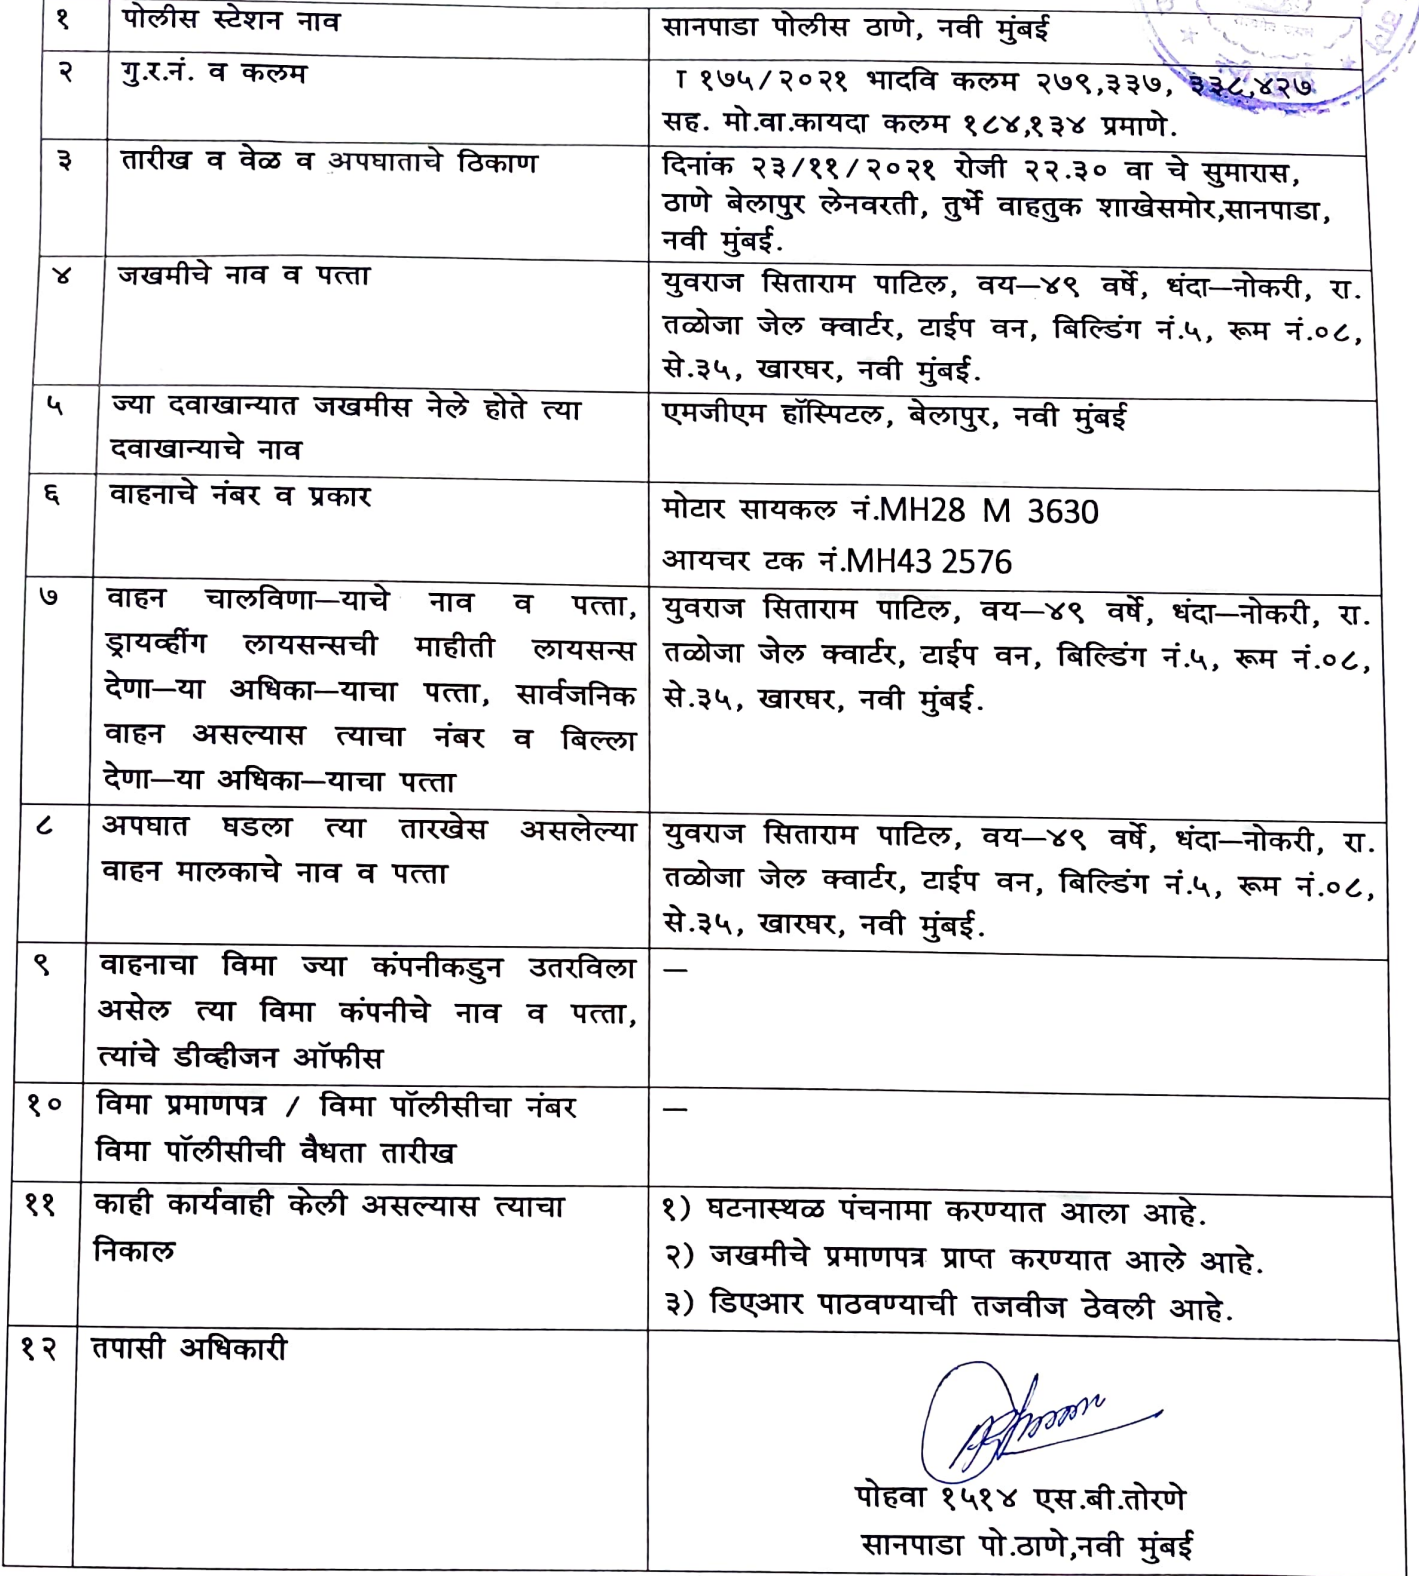 १ पोलीस स्टेशन नाव सानपाडा पोलीस ठाणे, नवी मुंबई
२ गु.र.नं. व कलम I १७५/२०२१ भादवि कलम २७९,३३७, ३३८,४२७
सह. मो.वा.कायदा कलम १८४,१३४ प्रमाणे.
३ तारीख व वेळ व अपघाताचे ठिकाण दिनांक २३/११/२०२१ रोजी २२.३० वा चे सुमारास,
ठाणे बेलापुर लेनवरती, तुर्भे वाहतुक शाखेसमोर,सानपाडा,
नवी मुंबई.
४ जखमीचे नाव व पत्ता युवराज सिताराम पाटिल, वय—४९ वर्षे, धंदा—नोकरी, रा.
तळोजा जेल क्वार्टर, टाईप वन, बिल्डिंग नं.५, रूम नं.०८,
से.३५, खारघर, नवी मुंबई.
५ ज्या दवाखान्यात जखमीस नेले होते त्या
दवाखान्याचे नाव
एमजीएम हॉस्पिटल, बेलापुर, नवी मुंबई
६ वाहनाचे नंबर व प्रकार मोटार सायकल नं.MH28 M 3630
आयचर टक नं.MH43 2576
७ वाहन चालविणा—याचे नाव व पत्ता,
ड्रायव्हींग लायसन्सची माहीती लायसन्स
देणा—या अधिका—याचा पत्ता, सार्वजनिक
वाहन असल्यास त्याचा नंबर व बिल्ला
देणा—या अधिका—याचा पत्ता
युवराज सिताराम पाटिल, वय—४९ वर्षे, धंदा—नोकरी, रा.
तळोजा जेल क्वार्टर, टाईप वन, बिल्डिंग नं.५, रूम नं.०८,
से.३५, खारघर, नवी मुंबई.
८ अपघात घडला त्या तारखेस असलेल्या
वाहन मालकाचे नाव व पत्ता
युवराज सिताराम पाटिल, वय—४९ वर्षे, धंदा—नोकरी, रा.
तळोजा जेल क्वार्टर, टाईप वन, बिल्डिंग नं.५, रूम नं.०८,
से.३५, खारघर, नवी मुंबई.
९ वाहनाचा विमा ज्या कंपनीकडुन उतरविला
असेल त्या विमा कंपनीचे नाव व पत्ता,
त्यांचे डीव्हीजन ऑफीस
—
१० विमा प्रमाणपत्र / विमा पॉलीसीचा नंबर
विमा पॉलीसीची वैधता तारीख
—
११ काही कार्यवाही केली असल्यास त्याचा
निकाल
१) घटनास्थळ पंचनामा करण्यात आला आहे.
२) जखमीचे प्रमाणपत्र प्राप्त करण्यात आले आहे.
३) डिएआर पाठवण्याची तजवीज ठेवली आहे.
१२ तपासी अधिकारी
पोहवा १५१४ एस.बी.तोरणे
सानपाडा पो.ठाणे,नवी मुंबई